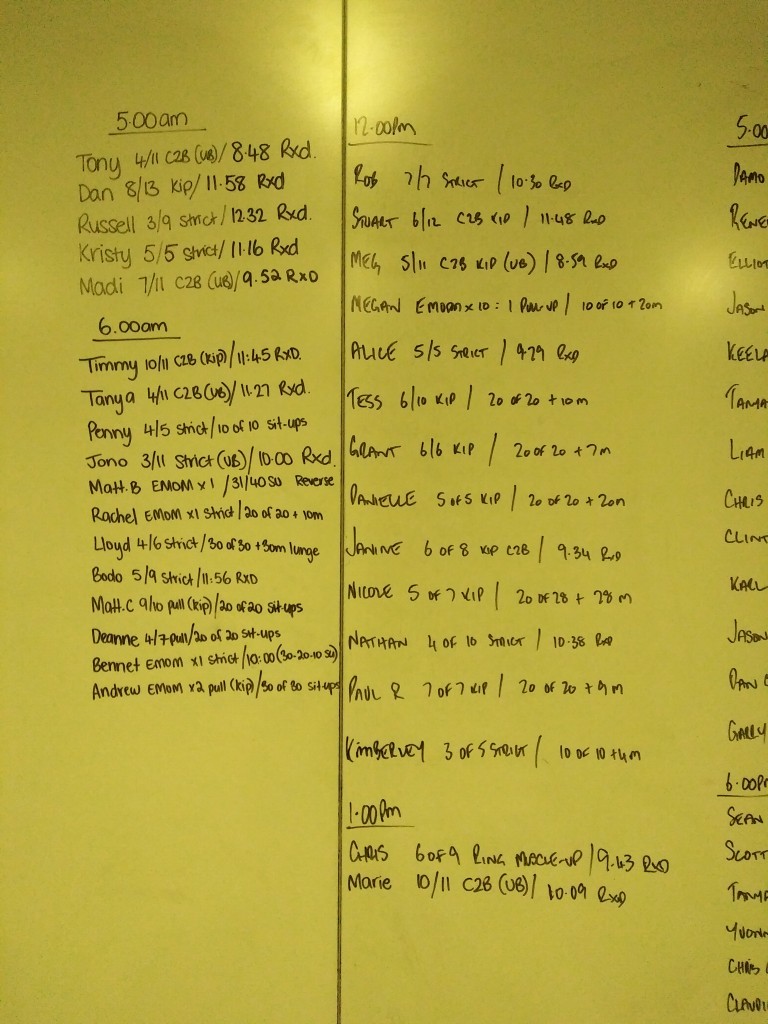 5.00am
Tony 4/11 C2B (UB)/ 8.48 Rxd.
Dan 8/13 Kip/ 11.58 Rxd
Russell 3/9 strict/ 12.32 Rxd.
Kristy 5/5 strict/ 11.16 Rxd
Madi 7/11 C2B (UB)/ 9.52 RxD
6.00am
Timmy 10/11 C2B (Kip)/ 11:45 RXD.
Tanya 4/11 C2B (UB)/ 11.27 Rxd.
Penny 4/5 strict/ 10 of 10 sit-ups
Jono 3/11 Strict (UB)/ 10:00 Rxd.
Matt.B EMOM x1 /31/40 SU Reverse
Rachel EMOM x1 strict/ 20 of 20 + 10m
Lloyd 4/6 strict/ 30 of 30 + 30m lunge
Bodo 5/9 strict/ 11:56 RXD
Matt.C 9/10 pull (kip)/ 20 of 20 sit-ups
Deanne 4/7 pull/ 20 of 20 sit-ups
Bennet EMOM x1 strict/ 10:00 (30-20-10 SU)
Andrew EMOM x2 pull (kip)/ 30 of 30 sit-ups
12.00pm
ROB 7/7 STRICT / 10.30 RXD
STUART 6/12 C2B KIP / 11.48 RXD
MEG 5/11 C2B KIP (UB) / 8.59 RXD
MEGAN EMOM x 10 : 1 PULL-UP / 10 OF 10 + 20m
ALICE 5/5 STRICT / 9.29 RXD
TESS 6/10 KIP / 20 OF 20 + 10m
GRANT 6/6 KIP / 20 OF 20 + 7m
DANIELLE 5 OF 5 KIP / 20 OF 20 + 20m
JANINE 6 OF 8 KIP C2B / 9.34 RXD
NICOLE 5 OF 7 KIP / 20 OF 28 + 28 m
NATHAN 4 OF 10 STRICT / 10.38 RXD
PAUL R 7 OF 7 KIP / 20 OF 20 + 9m
KIMBERLEY 3 OF 5 STRICT / 10 OF 10 + 4m
1.00pm
CHRIS 6 OF 9 RING MUSCLE-UP / 9.43 RXD
Marie 10/11 C2B (UB)/ 10.09 RXD
5.00
DAMO
RENE
ELLIOT
JASON
KEELA
TAMA
LIAM
CHRIS
CLINT
KARL
JASON
DAN
GARRY
6.00pm
SEAN
SCOTT
TANYA
YVONN
CHRIS
CLAUDI